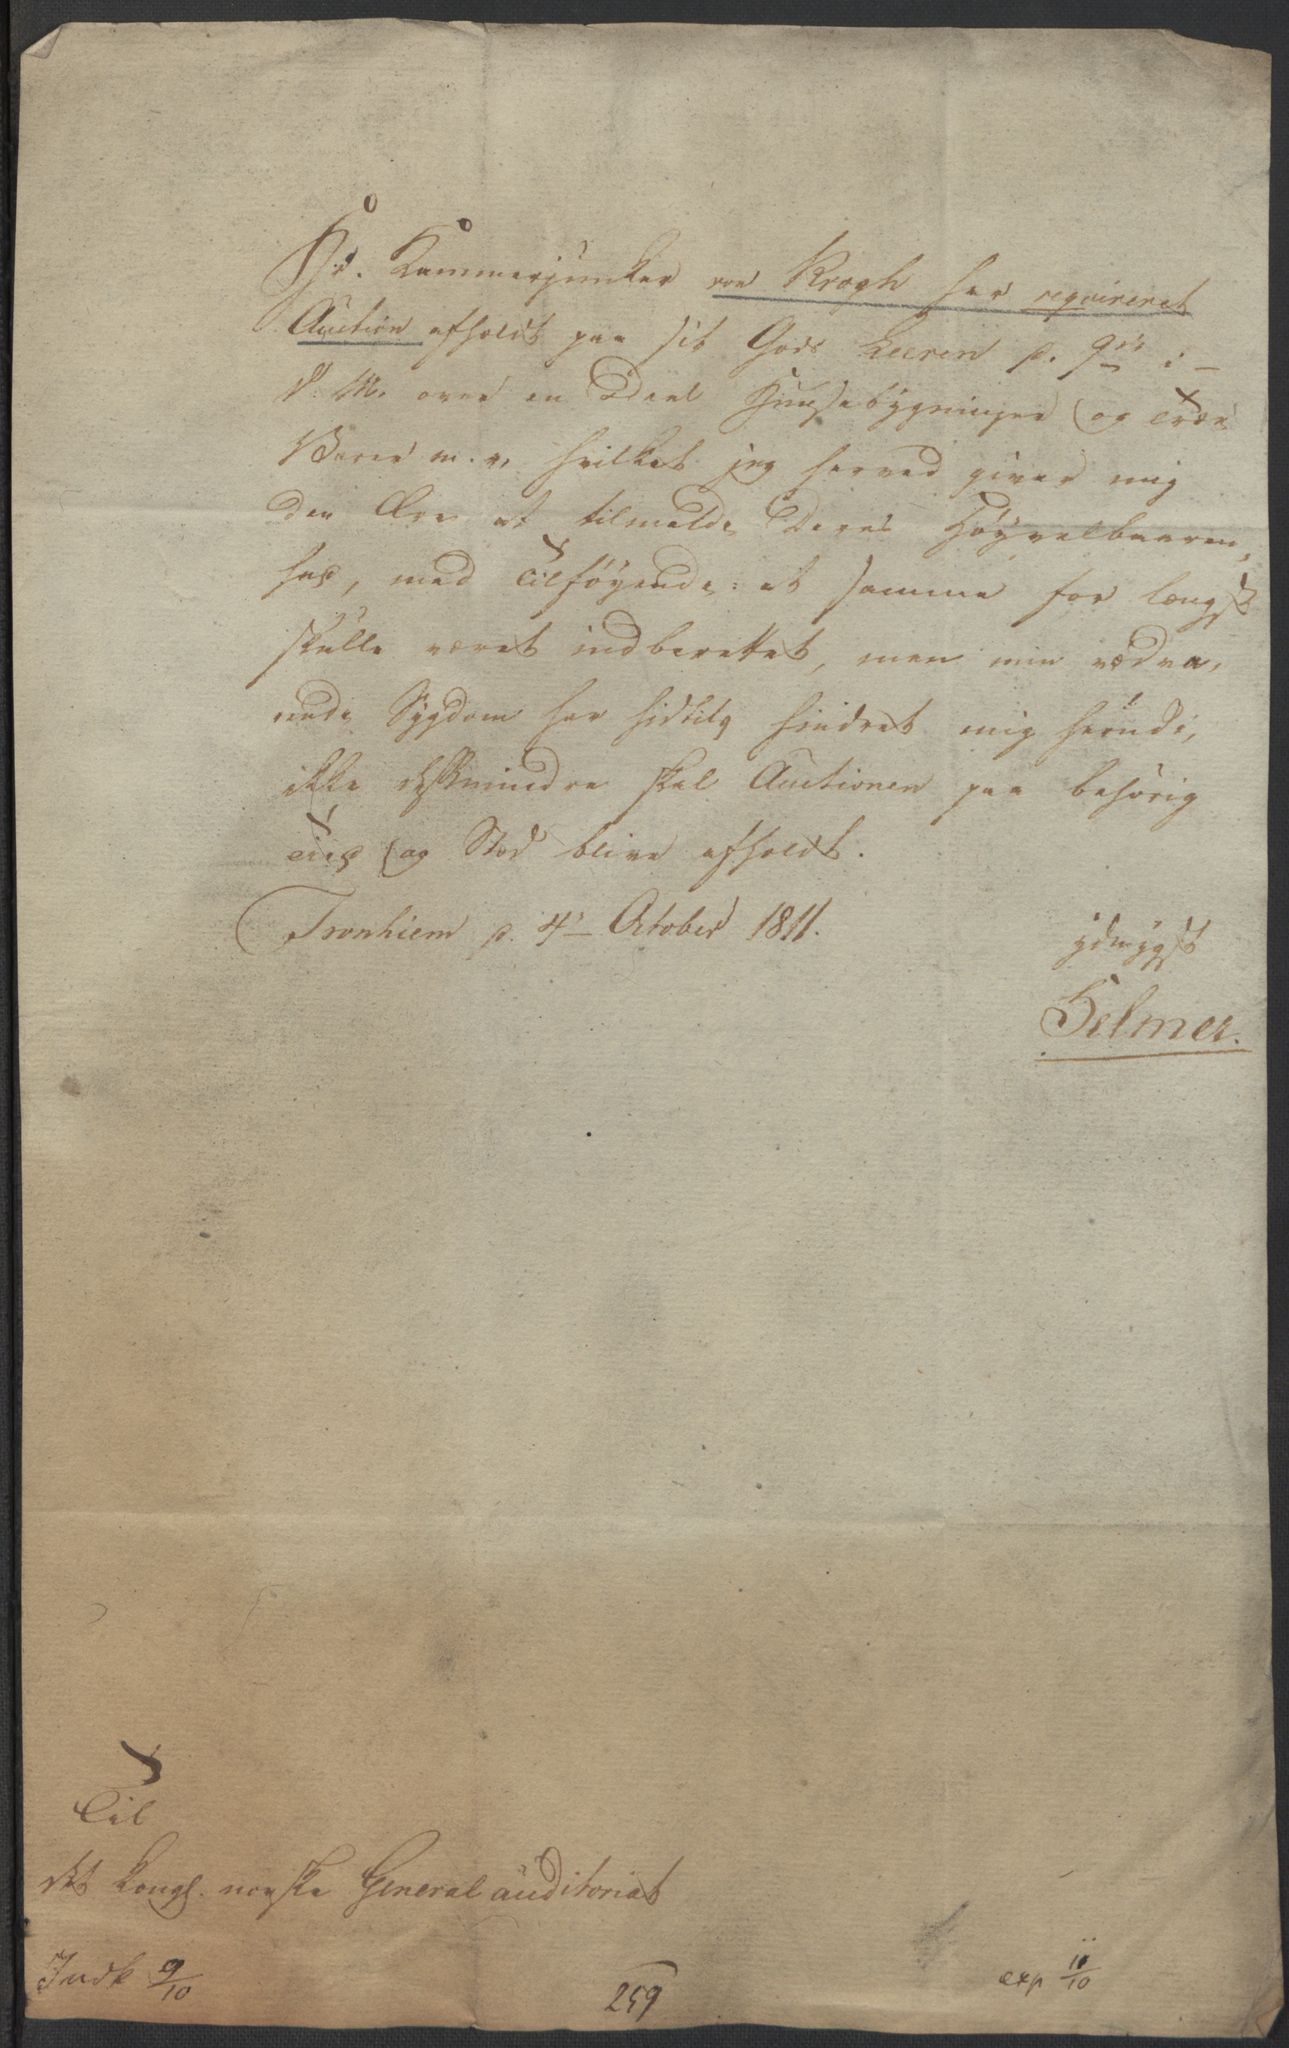 Hr. Kammerjunker von Krogh har reqvireret
Auction afholdt paa sit Gods Leeren p. 9de i
d: M. over en Deel Huusebygninger og Træe
Varer m. v. hvilket jeg herved giver mig
den Ære at tilmelde Deres Høyvelbaaren,
hed, med Tilføyende: at samme for længst
skulle været indberettet, men min vedva,
rende Sygdom har hidtil hindret mig herudi,
ikke destomindre skal Auctionen paa behörig
Tiid og Sted blive afholdt.
Tronhiem p. 4 October 1811.
ydmygst
Selmer.
Til
det kongl. norske General auditoriat
Indk 9/10
259
exp 11/10